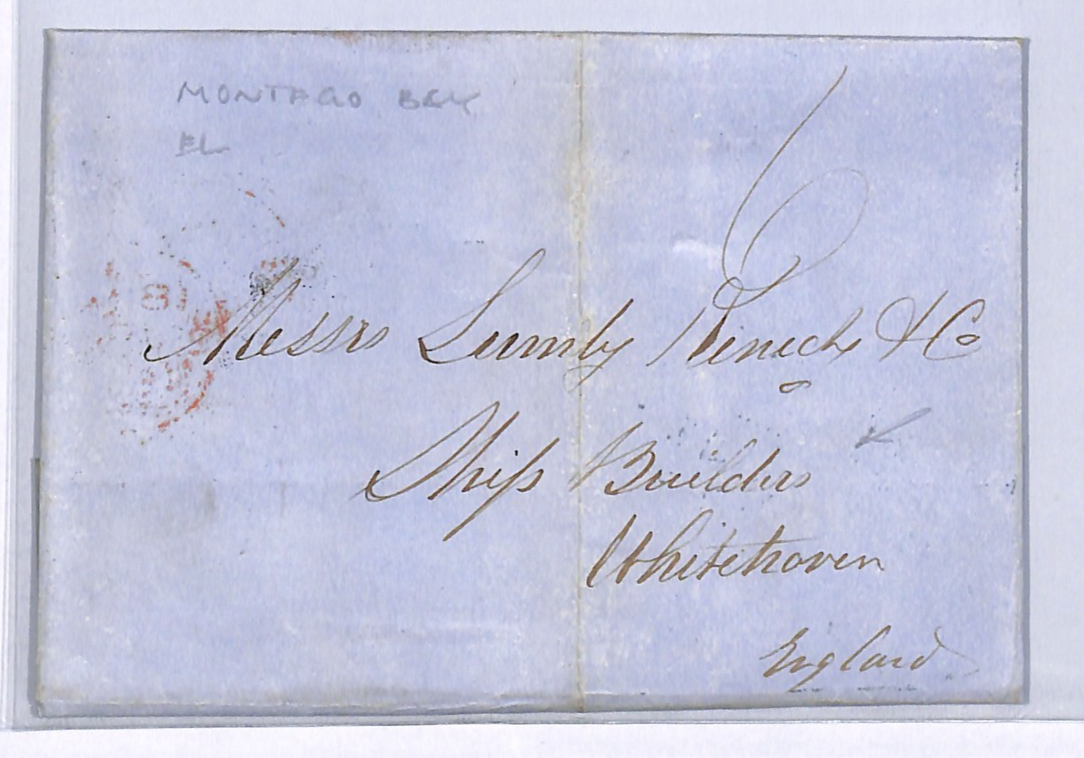 MONTEGO BAY
EL
6
8
Messrs Lumby & Co
Ship Builders
Whitehaven
England